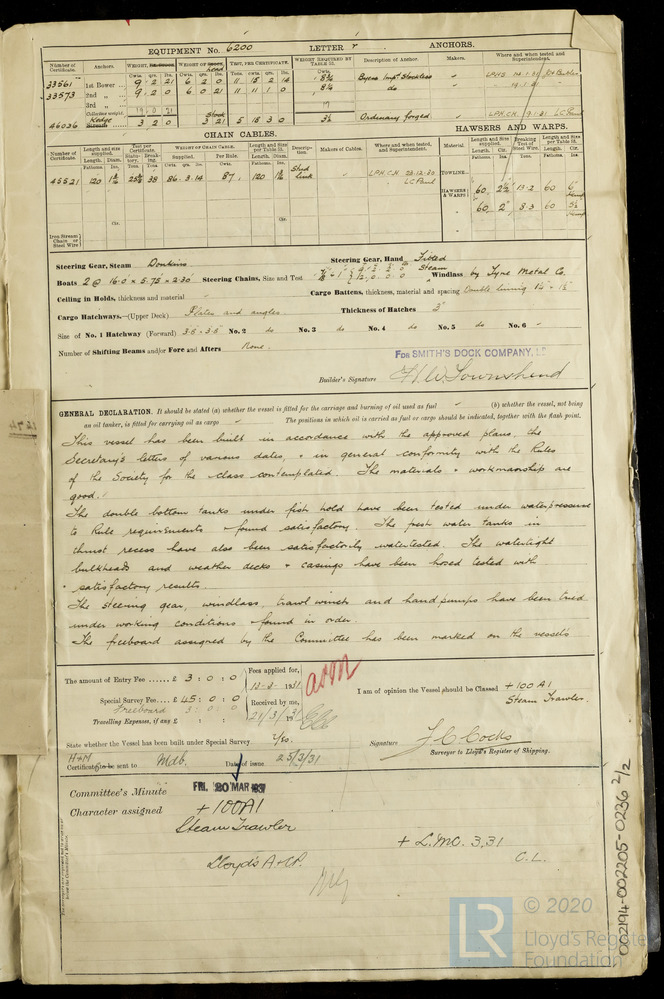 EQUIPMENT No. 6200 LETTER r ANCHORS.
Number of Certificate. Anchors. WEIGHT, WEIGHT OF head TEST, PER CERTIFICATE. WEIGHT REQUIRED BY TABLE 22. Description of Anchor. Makers. Where and when tested and Superintendent.
Cwts. qrs. lbs. Cwts. qrs. lbs. Tons. cwts. qrs. lbs. Cwts.
33561 1st Bower 9 2 21 6 2 0 11 15 2 14 8¾ Byers Impd Stockless
33573 2nd " 9 2 0 6 0 21 11 11 1 0 8¼ do 19.1.31
3rd "
Collective weight 19 0 21 17 Stock
46026 Kedge 3 2 0 3 21 5 15 3 0 3½ Ordinary forged. LPH.CH. 9.1.31 LC Paul
CHAIN CABLES. HAWSERS AND WARPS.
Number of Certificate. Length and size supplied. Test per Certificate. WEIGHT OF CHAIN CABLE. Length and size per Table 22. Description. Makers of Cables. Where and when tested, and Superintendent. Material Length and Size supplied. Breaking Test of Steel Wire. Length and Size per Table 22.
Length. Diam. Statutory. Breaking. Supplied. Per Rule. Length. Diam. Fathoms. Cir. Tons. Length. Cir.
45521 120 38 86.3.14 87. 120 Stud Link LPH.CH 23.12.30 LC Paul TOWLINE
HAWSERS & WARPS 60 2½" 13.2 60 6"
60 2" 8.3 60 5½"
Iron Stream Chain or Steel Wire
Steering Gear, Steam Donkins Steering Gear, Hand Fitted
Boats 2 @ 16.0 × 5.75 × 2.30 Steering Chains, Size and Test Steam Windlass by Tyne Metal Co.
Ceiling in Holds, thickness and material Cargo Battens, thickness, material and spacing Double lining 1½" - 1½"
Cargo Hatchways.—(Upper Deck) Plates and angles. Thickness of Hatches 3"
Size of No. 1 Hatchway (Forward) 3.5 × 3.5 No. 2 do No. 3 do No. 4 do No. 5 do No. 6 -
Number of Shifting Beams and/or Fore and Afters None.
FOR SMITH'S DOCK COMPANY, LD
Builder's Signature H.W. Townshend
GENERAL DECLARATION. It should be stated (a) whether the vessel is fitted for the carriage and burning of oil used as fuel (b) whether the vessel, not being
an oil tanker, is fitted for carrying oil as cargo The positions in which oil is carried as fuel or cargo should be indicated, together with the flash point.
This vessel has been built in accordance with the approved plans, the
Secretary's letters of various dates, + in general conformity with the Rules
of the Society for the class contemplated. The materials + workmanship are
good.
The double bottom tanks under fish hold have been tested under water pressure
to Rule requirements + found satisfactory. The fresh water tanks in
thrust recess have also been satisfactorily watertested. The watertight
bulkheads and weather decks + casings have been hosed tested with
satisfactory results.
The steering gear, windlass, trawl winch and hand pumps have been tried
under working conditions + found in order.
The freeboard assigned by the Committee has been marked on the vessel's
The amount of Entry Fee ...... £ 3 : 0 : 0 Fees applied for,
13-3-1931
Special Survey Fee.... £ 45 : 0 : 0 Received by me,
Freeboard 3 : 0 : 0 21/3/31
Travelling Expenses, if any £
I am of opinion the Vessel should be Classed +100 A1
Steam Trawler.
State whether the Vessel has been built under Special Survey. Yes. Signature J.C. Cocks
Surveyor to Lloyd's Register of Shipping.
H+M
Certificate to be sent to Mdb. Date of issue 25/3/31
Committee's Minute FRI. 20 MAR 1931
Character assigned +100A1
Steam Trawler + L.M.C. 3,31
Lloyd's A+CP. C.L.
002194-002205-0236 2/2
© 2020
LR Lloyd's Register
Foundation